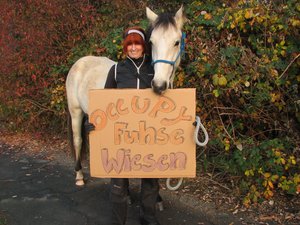 OCCUPY
FUHSE
WIESEN